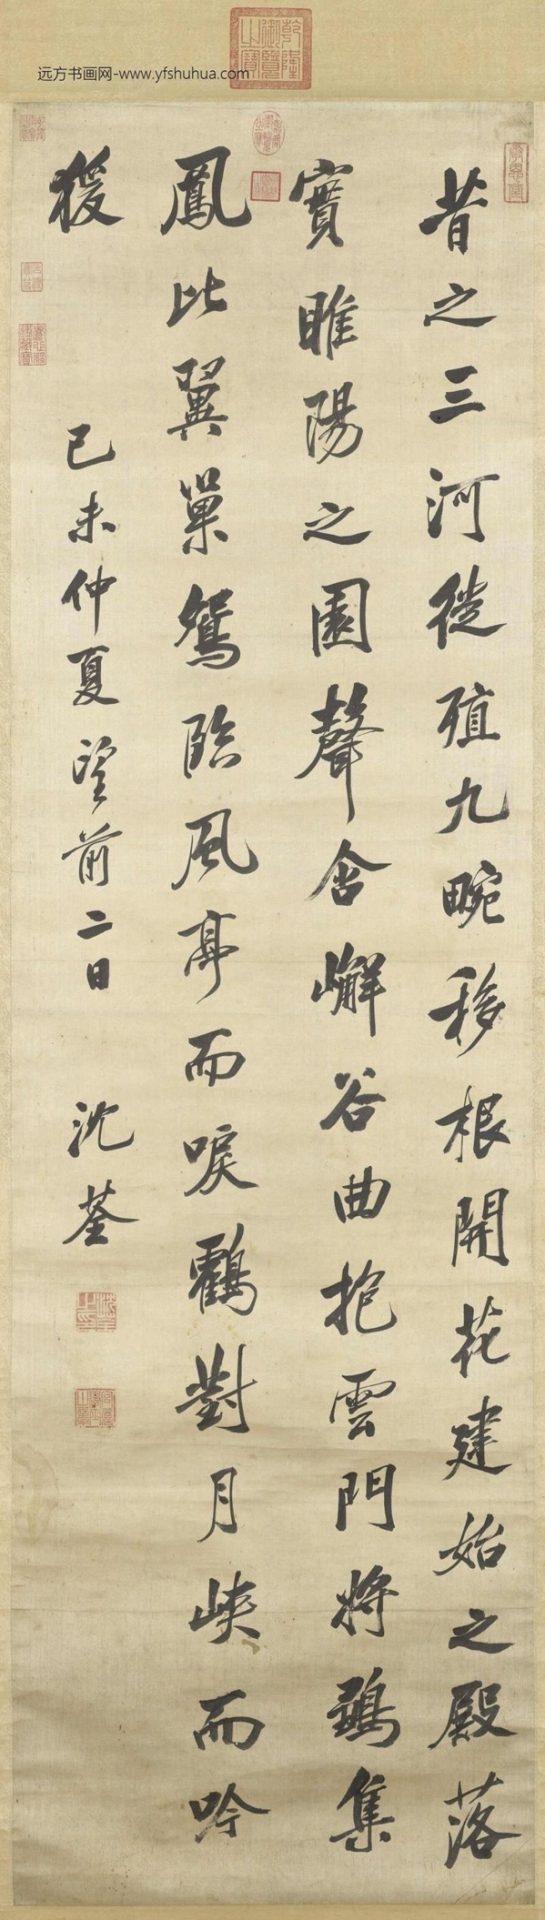 远方书画网-www.yfshuhua.com
乾隆御覽之寶
昔之三河徙殖九畹移根開花建始之殿落
實睢陽之園聲含嶰谷曲抱雲門將鶵集
鳳比翼巢鴛臨風亭而唳鶴對月峽而吟
猨
己未仲夏望前二日 沈荃